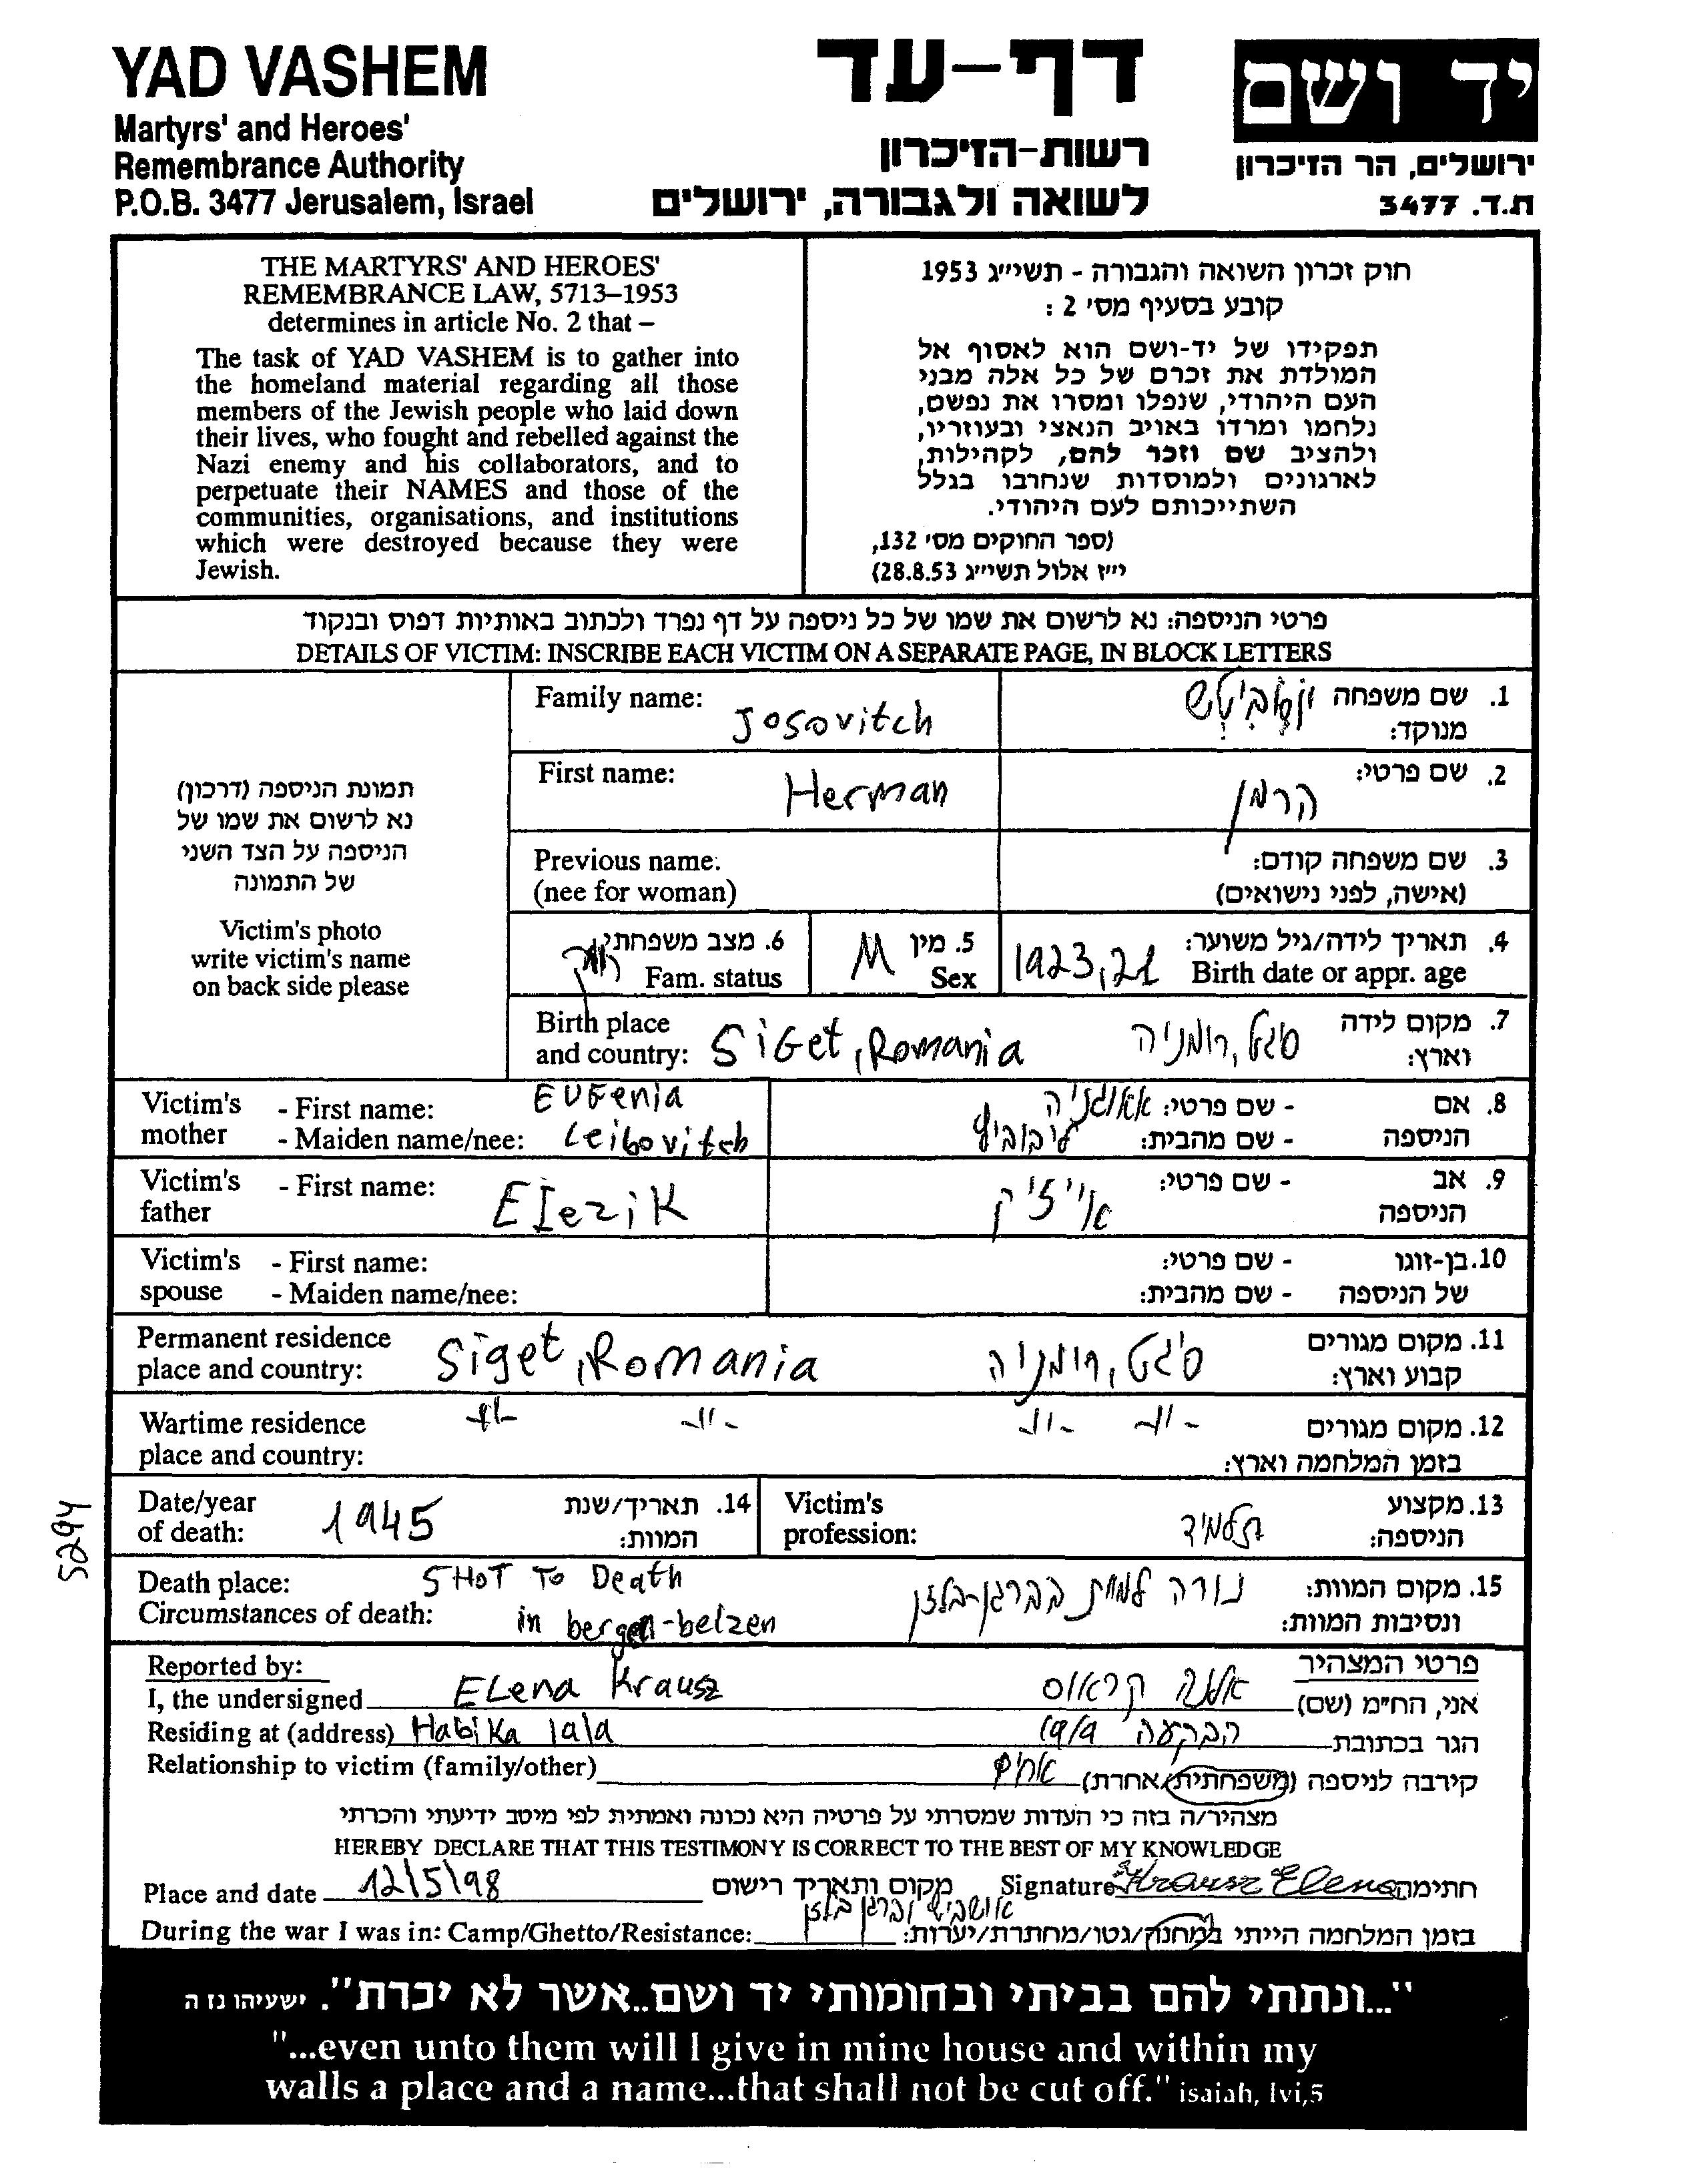 YAD VASHEM
Martyrs' and Heroes'
Remembrance Authority
P.O.B. 3477 Jerusalem, Israel
דף-עד
רשות-הזיכרון
לשואה ולגבורה, ירושלים
יד ושם
ירושלים, הר הזיכרון
ת.ד. 3477
THE MARTYRS' AND HEROES'
REMEMBRANCE LAW, 5713–1953
determines in article No. 2 that –
The task of YAD VASHEM is to gather into
the homeland material regarding all those
members of the Jewish people who laid down
their lives, who fought and rebelled against the
Nazi enemy and his collaborators, and to
perpetuate their NAMES and those of the
communities, organisations, and institutions
which were destroyed because they were
Jewish.
חוק זכרון השואה והגבורה - תשי״ג 1953
קובע בסעיף מס׳ 2 :
תפקידו של יד-ושם הוא לאסוף אל
המולדת את זכרם של כל אלה מבני
העם היהודי, שנפלו ומסרו את נפשם,
נלחמו ומרדו באויב הנאצי ובעוזריו,
ולהציב שם וזכר להם, לקהילות,
לארגונים ולמוסדות שנחרבו בגלל
השתייכותם לעם היהודי.
(ספר החוקים מס׳ 132,
י״ז אלול תשי״ג 28.8.53)
פרטי הניספה: נא לרשום את שמו של כל ניספה על דף נפרד ולכתוב באותיות דפוס ובנקוד
DETAILS OF VICTIM: INSCRIBE EACH VICTIM ON A SEPARATE PAGE, IN BLOCK LETTERS
תמונת הניספה (דרכון)
נא לרשום את שמו של
הניספה על הצד השני
של התמונה
Victim's photo
write victim's name
on back side please
Family name: Josovitch
1. שם משפחה
מנוקד:
First name: Herman
2. שם פרטי: הרמן
Previous name:
(nee for woman)
3. שם משפחה קודם:
(אישה, לפני נישואים)
6. מצב משפחתי: רווק
Fam. status
5. מין M
Sex
4. תאריך לידה/גיל משוער: 1923, 21
Birth date or appr. age
Birth place
and country: SiGet, Romania
7. מקום לידה
וארץ: סגט, רומניה
Victim's mother - First name: EUGenia
- Maiden name/nee: Leibovitch
8. אם הניספה - שם פרטי: אאוגניה
- שם מהבית: ליבוביץ
Victim's father - First name: EIeziK
9. אב הניספה - שם פרטי: אייזיק
Victim's spouse - First name:
- Maiden name/nee:
10. בן-זוגו של הניספה - שם פרטי:
- שם מהבית:
Permanent residence
place and country: Siget, Romania
11. מקום מגורים
קבוע וארץ: סיגט, רומניה
Wartime residence
place and country: -"- -"-
12. מקום מגורים
בזמן המלחמה וארץ: -"- -"-
Date/year
of death: 1945
14. תאריך/שנת
המוות:
Victim's
profession:
13. מקצוע
הניספה: תלמיד
Death place: SHOT To Death
Circumstances of death: in bergen-belzen
15. מקום המוות:
ונסיבות המוות: נורה למוות בברגן-בלזן
Reported by:
פרטי המצהיר
I, the undersigned ELena Krausz
אני, הח״מ (שם) אלנה קראוס
Residing at (address) HabiKa 19/9
הגר בכתובת הבקעה 19/9
Relationship to victim (family/other)
קירבה לניספה (משפחתית/אחרת)
מצהיר/ה בזה כי העדות שמסרתי על פרטיה היא נכונה ואמתית לפי מיטב ידיעתי והכרתי
HEREBY DECLARE THAT THIS TESTIMONY IS CORRECT TO THE BEST OF MY KNOWLEDGE
Place and date 12/5/98 מקום ותאריך רישום
Signature Krausz Elena חתימה
During the war I was in: Camp/Ghetto/Resistance:
בזמן המלחמה הייתי במחנה/גטו/מחתרת/יערות: אושביץ וברגן בלזן
5294
"...ונתתי להם בביתי ובחומותי יד ושם..אשר לא יכרת". ישעיהו נז ה
"...even unto them will I give in mine house and within my
walls a place and a name...that shall not be cut off." isaiah, lvi,5